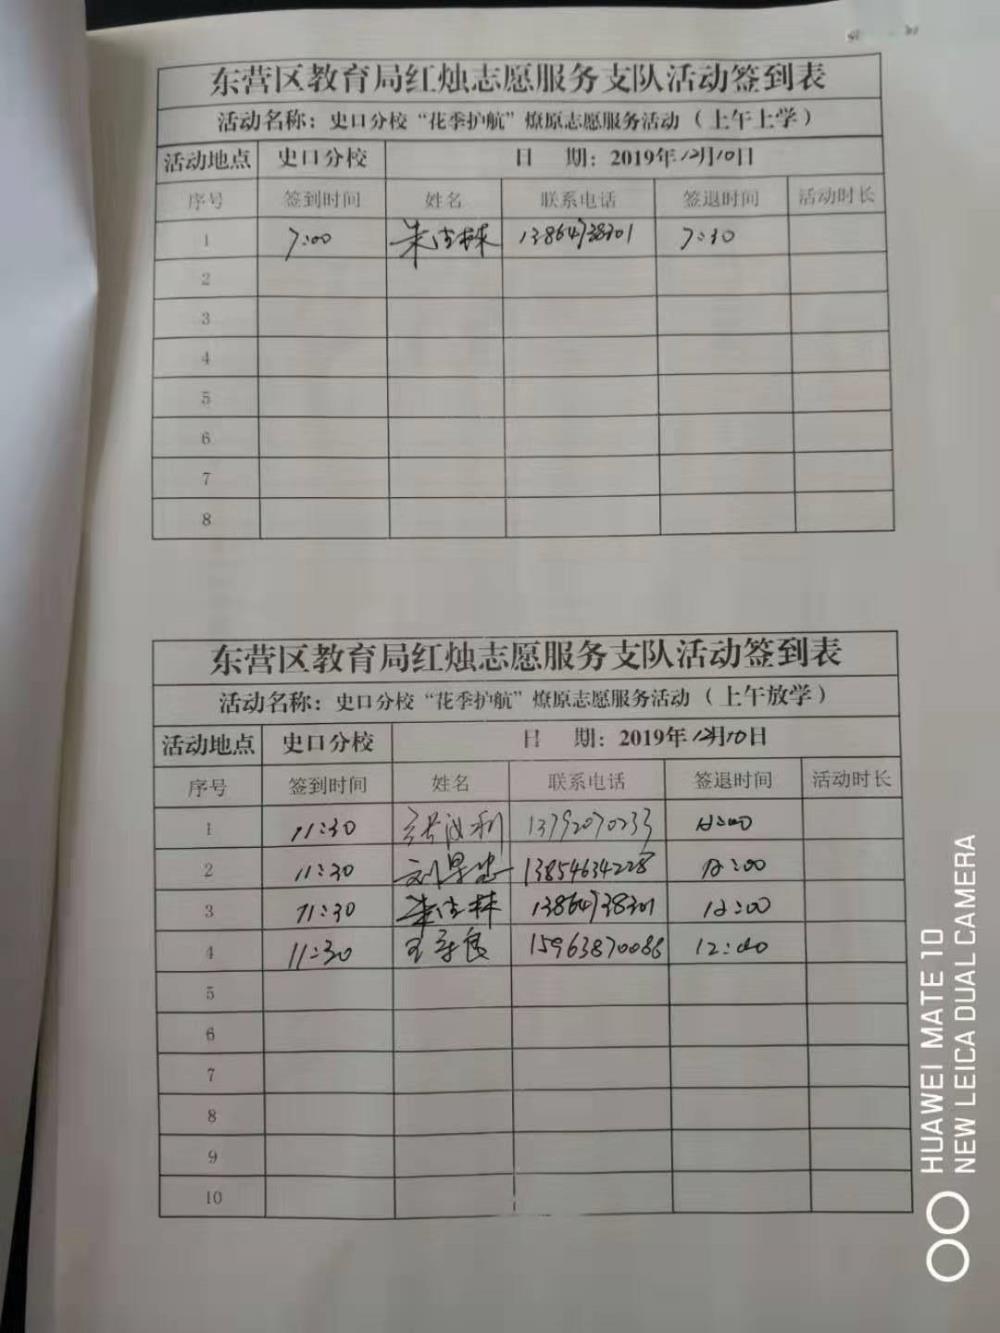 东营区教育局红烛志愿服务支队活动签到表
活动名称：史口分校“花季护航”燎原志愿服务活动（上午上学）
活动地点 史口分校 日 期：2019年12月10日
序号 签到时间 姓名 联系电话 签退时间 活动时长
1 7:00 13864738301 7:30
2
3
4
5
6
7
8
东营区教育局红烛志愿服务支队活动签到表
活动名称：史口分校“花季护航”燎原志愿服务活动（上午放学）
活动地点 史口分校 日 期：2019年12月10日
序号 签到时间 姓名 联系电话 签退时间 活动时长
1 11:30 13792070233 12:00
2 11:30 13854634228 12:00
3 11:30 13864738301 12:00
4 11:30 15963870088 12:00
5
6
7
8
9
10
HUAWEI MATE 10
NEW LEICA DUAL CAMERA